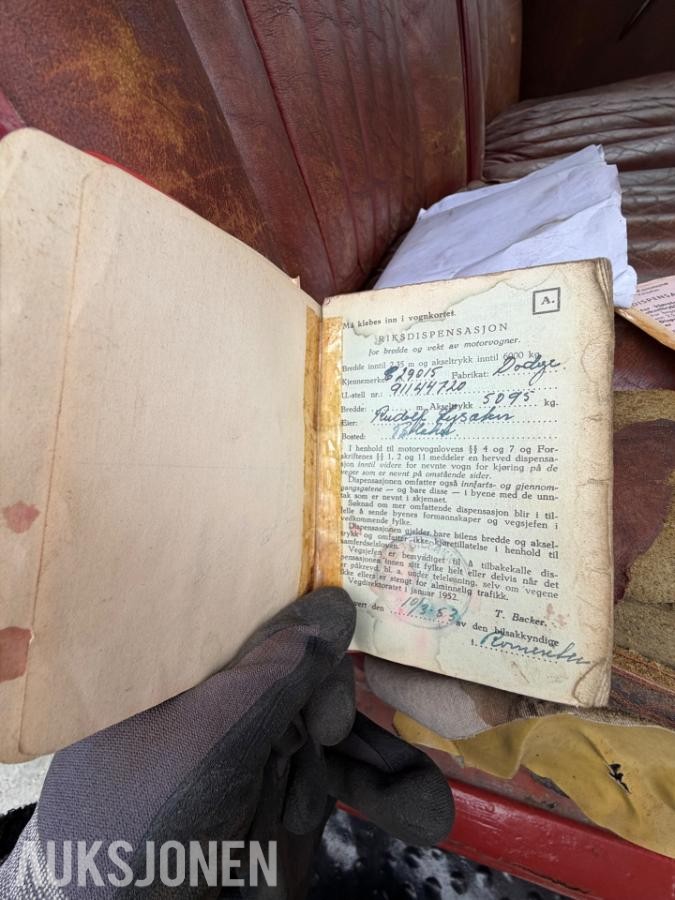 Må klebes inn i vognkortet.
A.
RIKSDISPENSASJON
for bredde og vekt av motorvogner.
Bredde inntil 2,35 m og akseltrykk inntil 6000 kg.
Kjennemerke: 29015 Fabrikat: Dodge.
U.-stell nr.: 91144720
Bredde: m. Akseltrykk 5095 kg.
Eier: Rudolf Lysaker
Bosted:
I henhold til motorvognlovens §§ 4 og 7 og For-
skriftenes §§ 1, 2 og 11 meddeler en herved dispensa-
sjon inntil videre for nevnte vogn for kjøring på de
veger som er nevnt på omstående sider.
Dispensasjonen omfatter også innfarts- og gjennom-
gangsgatene — og bare disse — i byene med de unn-
tak som er nevnt i skjemaet.
Søknad om mer omfattende dispensasjon blir i til-
felle å sende byenes formannskaper og vegsjefen i
vedkommende fylke.
Dispensasjonen gjelder bare bilens bredde og aksel-
trykk og omfatter ikke kjøretillatelse i henhold til
samferdselsloven.
Vegsjefen er bemyndiget til å tilbakekalle dis-
pensasjonen innen sitt fylke helt eller delvis når det
er påkrevd, bl. a. under teleløsning, selv om vegene
ikke ellers er stengt for alminnelig trafikk.
Vegdirektoratet i januar 1952.
T. Backer.
vert den 10/3-53 av den bilsakkyndige
i
DISPENSA
AUKSJONEN